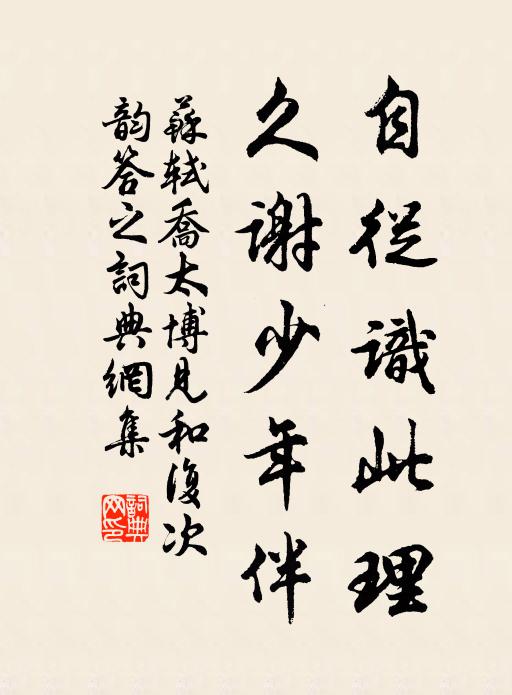 自從識此理
久謝少年伴
蘇軾喬太博見和復次
韵答之詞典網集
詞典網印